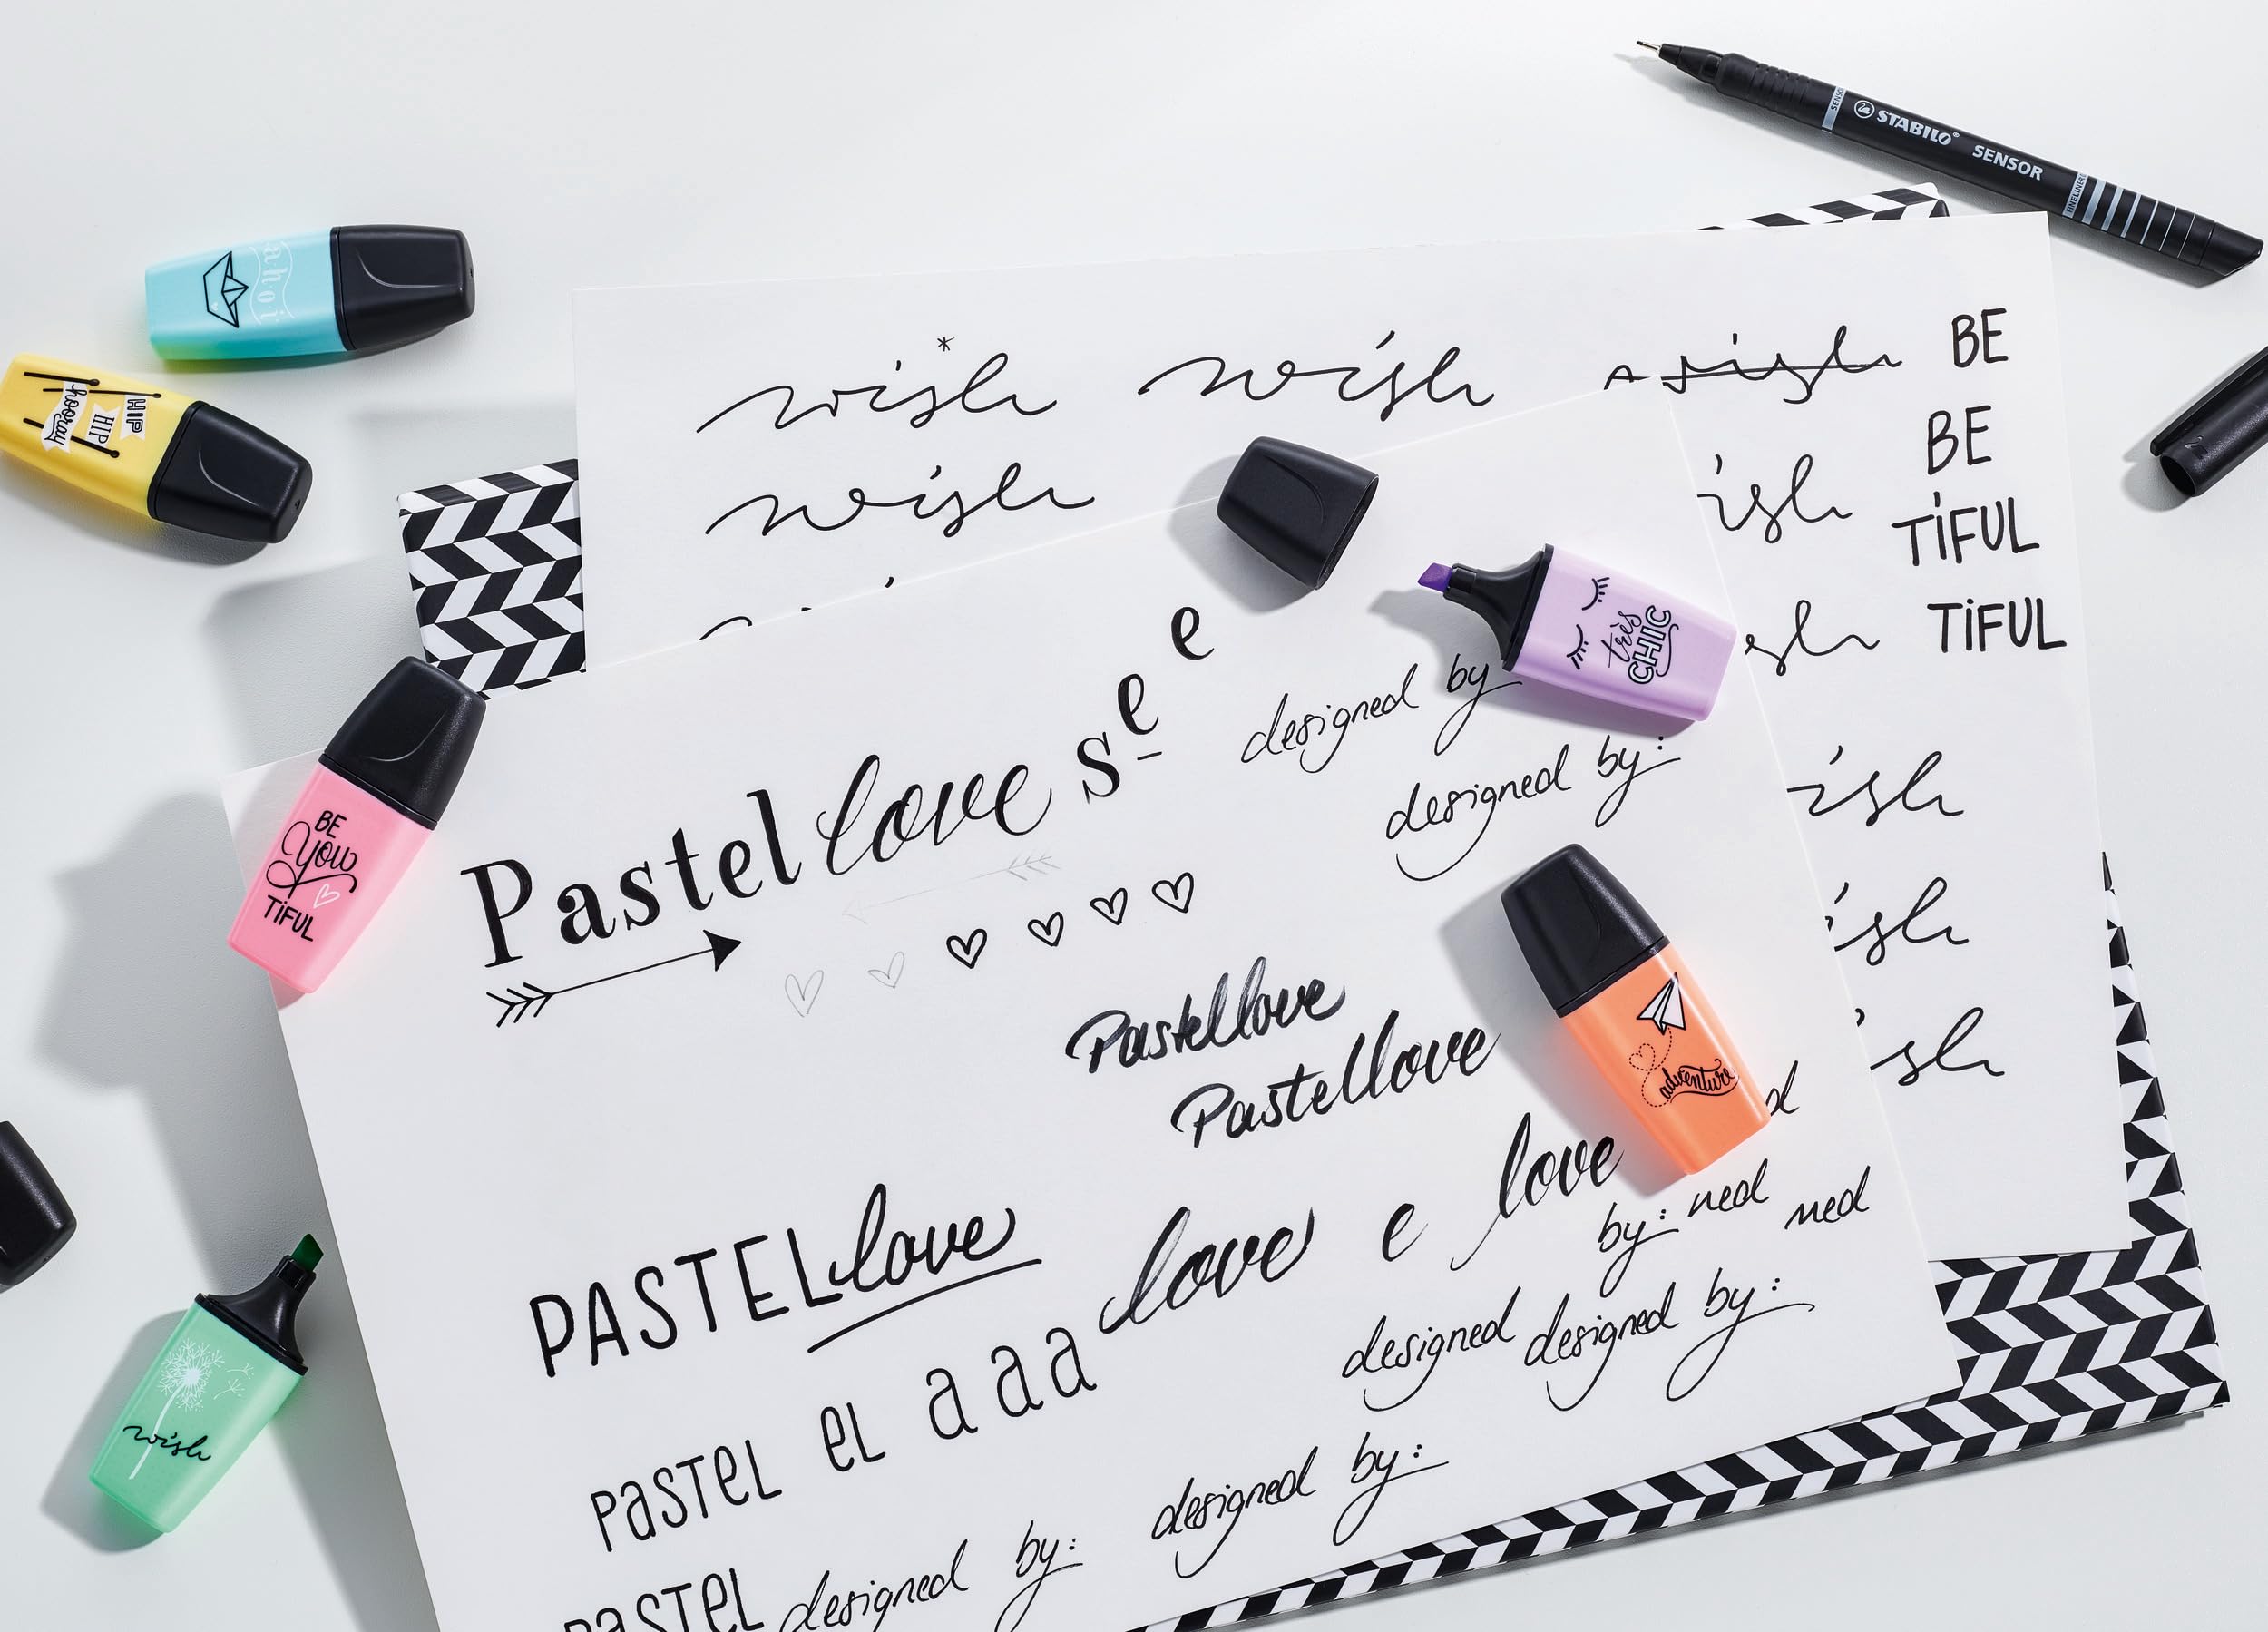 SENSOR STABILO® SENSOR FINELINER
ahoi
HIP
HIP
hooray
wish wish wish BE
wish BE
TiFUL
TiFUL
très
CHIC
BE
you
TiFUL
e
e
s
Pastel love
designed by
designed by:
Pastellove
Pastellove
adventure
PASTEL love
love e love
by: ned ned
designed designed by:
PaSTeL eL a a a
designed by:
PaSTeL designed by:
wish